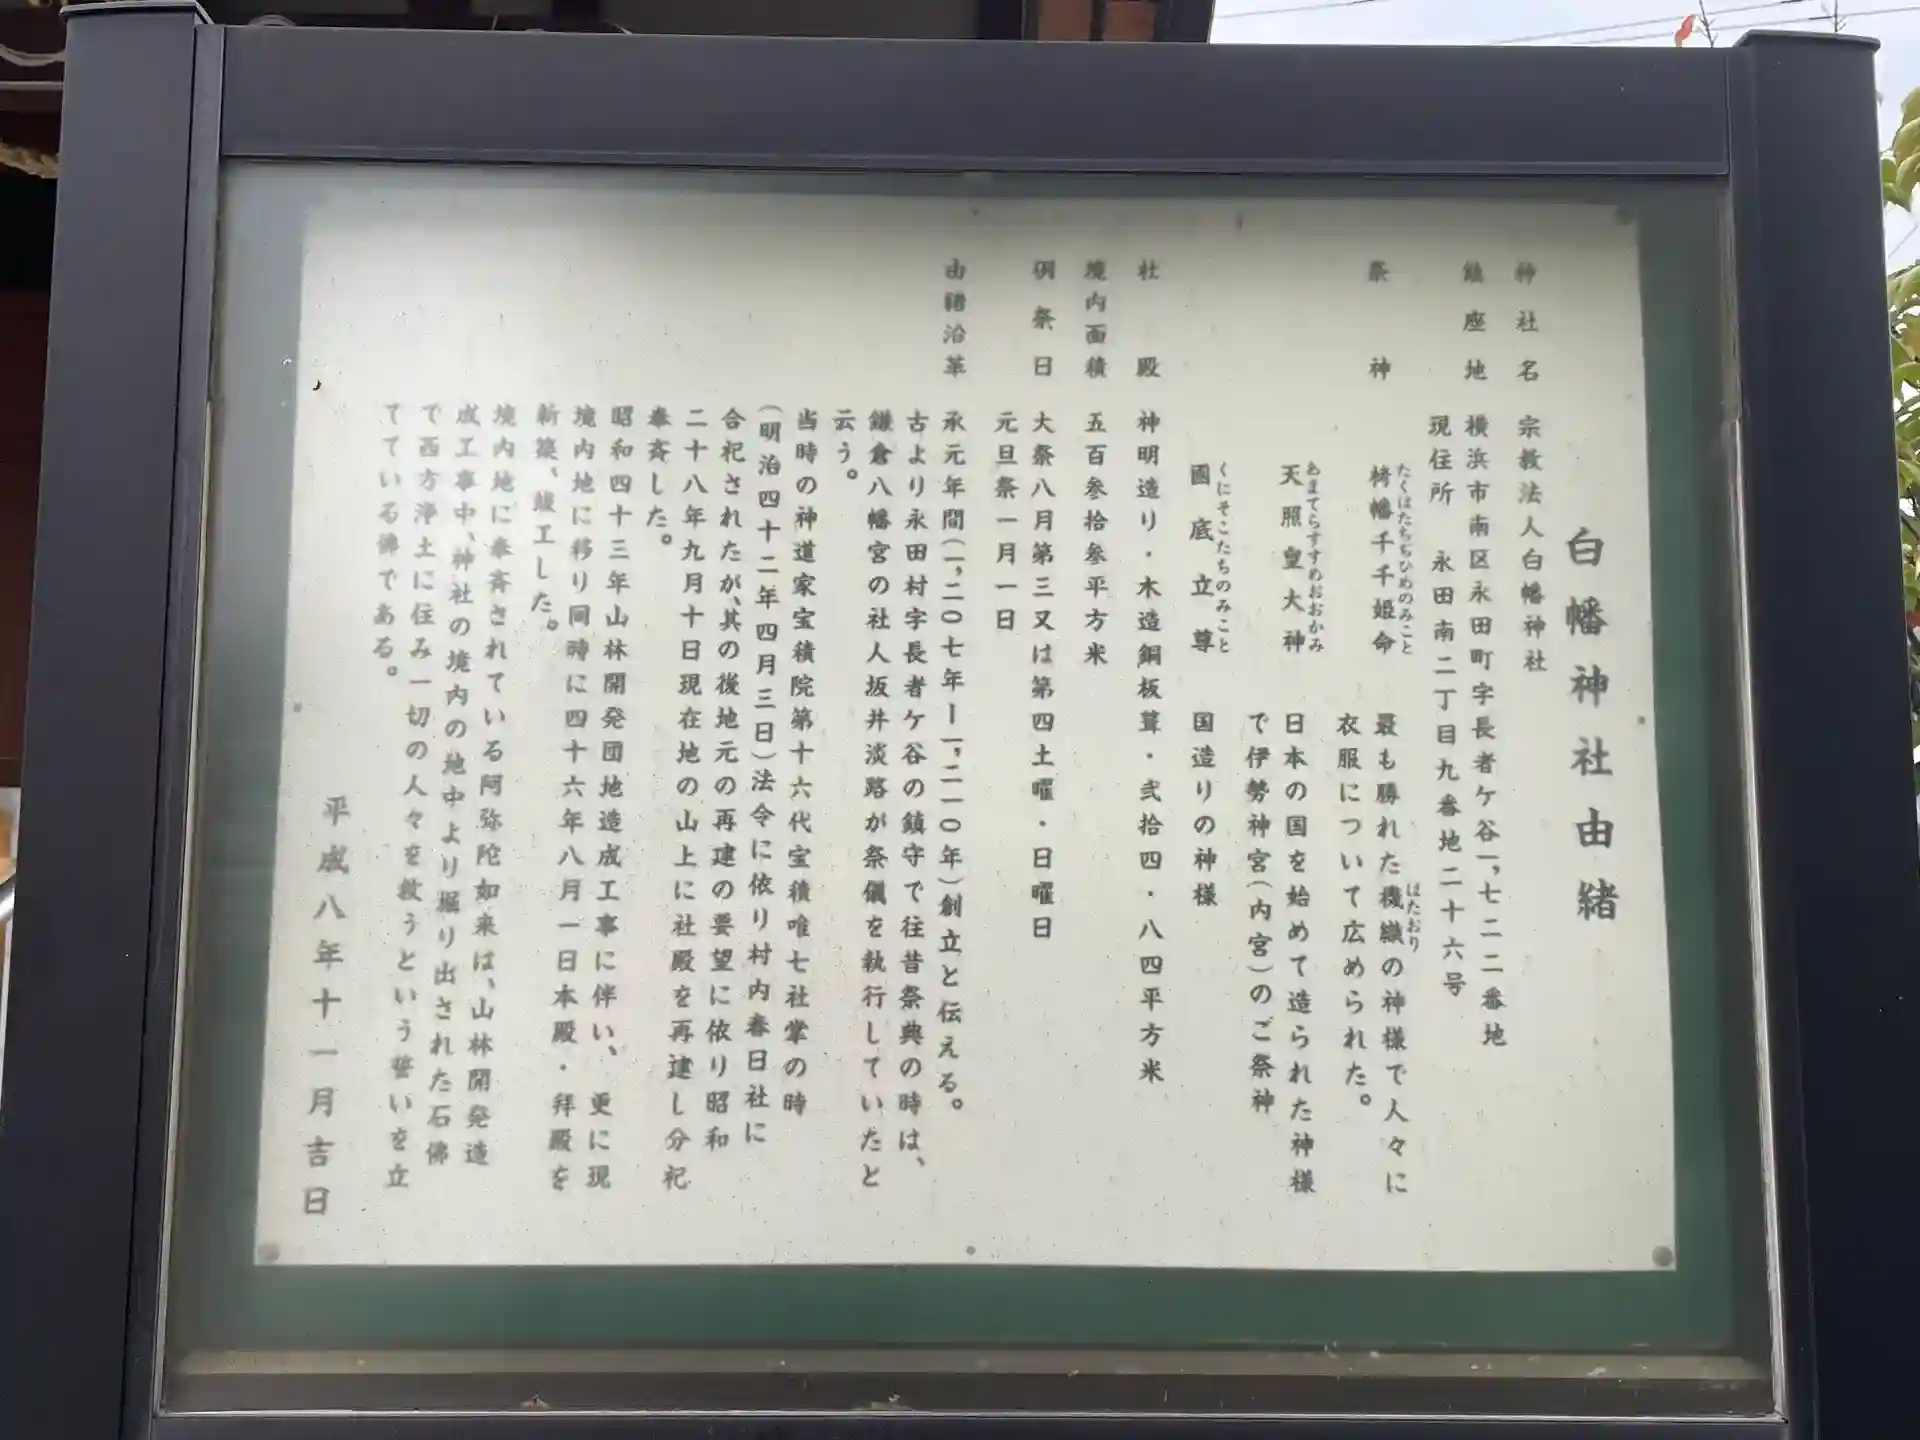 白幡神社由緒
神社名 宗教法人白幡神社
鎮座地 横浜市南区永田町字長者ケ谷一,七二二番地
現住所 永田南二丁目九番地二十六号
祭神 栲幡千千姫命 最も勝れた機織の神様で人々に
たくはたちぢひめのみこと はたおり
衣服について広められた。
天照皇大神 日本の国を始めて造られた神様
あまてらすすめおおかみ
で伊勢神宮(内宮)のご祭神
國底立尊 国造りの神様
くにそこたちのみこと
社殿 神明造り・木造銅板葺・弐拾四・八四平方米
境内面積 五百参拾参平方米
例祭日 大祭八月第三又は第四土曜・日曜日
元旦祭一月一日
由緒沿革 承元年間(一,二〇七年ー一,二一〇年)創立と伝える。
古より永田村字長者ケ谷の鎮守で往昔祭典の時は、
鎌倉八幡宮の社人坂井淡路が祭儀を執行していたと
云う。
当時の神道家宝積院第十六代宝積唯七社掌の時
(明治四十二年四月三日)法令に依り村内春日社に
合祀されたが、其の後地元の再建の要望に依り昭和
二十八年九月十日現在地の山上に社殿を再建し分祀
奉斉した。
昭和四十三年山林開発団地造成工事に伴い、更に現
境内地に移り同時に四十六年八月一日本殿・拝殿を
新築、竣工した。
境内地に奉斉されている阿弥陀如来は、山林開発造
成工事中、神社の境内の地中より掘り出された石佛
で西方浄土に住み一切の人々を救うという誓いを立
てている佛である。
平成八年十一月吉日